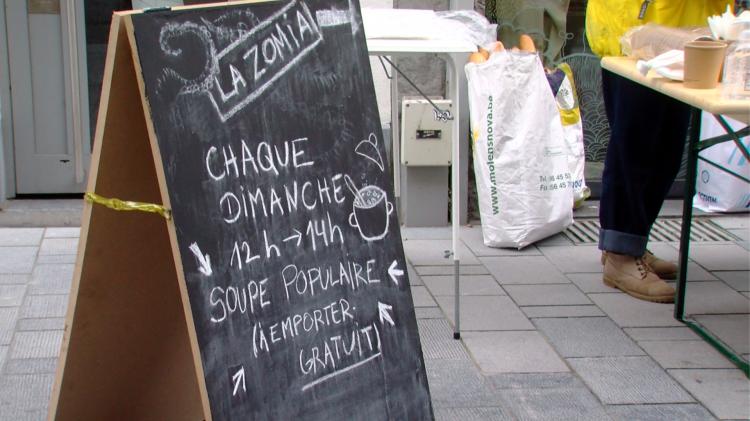 LA ZONIA
CHAQUE
DIMANCHE
12h → 14h
SOUPE POPULAIRE
(À EMPORTER.
GRATUIT)
www.molensnova.ba